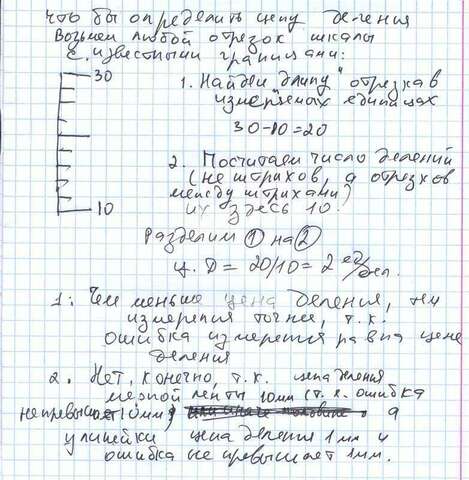 Что бы определить цену деления
Возьмем любой отрезок шкалы
с известными границами:
30
10
1. Найдем "длину" отрезка в
измеряемых единицах
30-10=20
2. Посчитаем число делений
(не штрихов, а отрезков
между штрихами)
их здесь 10.
Разделим ① на ②
ц. д = 20/10 = 2 ед/дел.
1. Чем меньше цена деления, тем
измерения точнее, т.к.
ошибка измерения равна цене
деления
2. Нет, конечно, т.к. цена деления
мерной ленты 10мм (т.к. ошибка
не превышает 10мм) а
у линейки цена деления 1 мм и
ошибка не превышает 1мм.